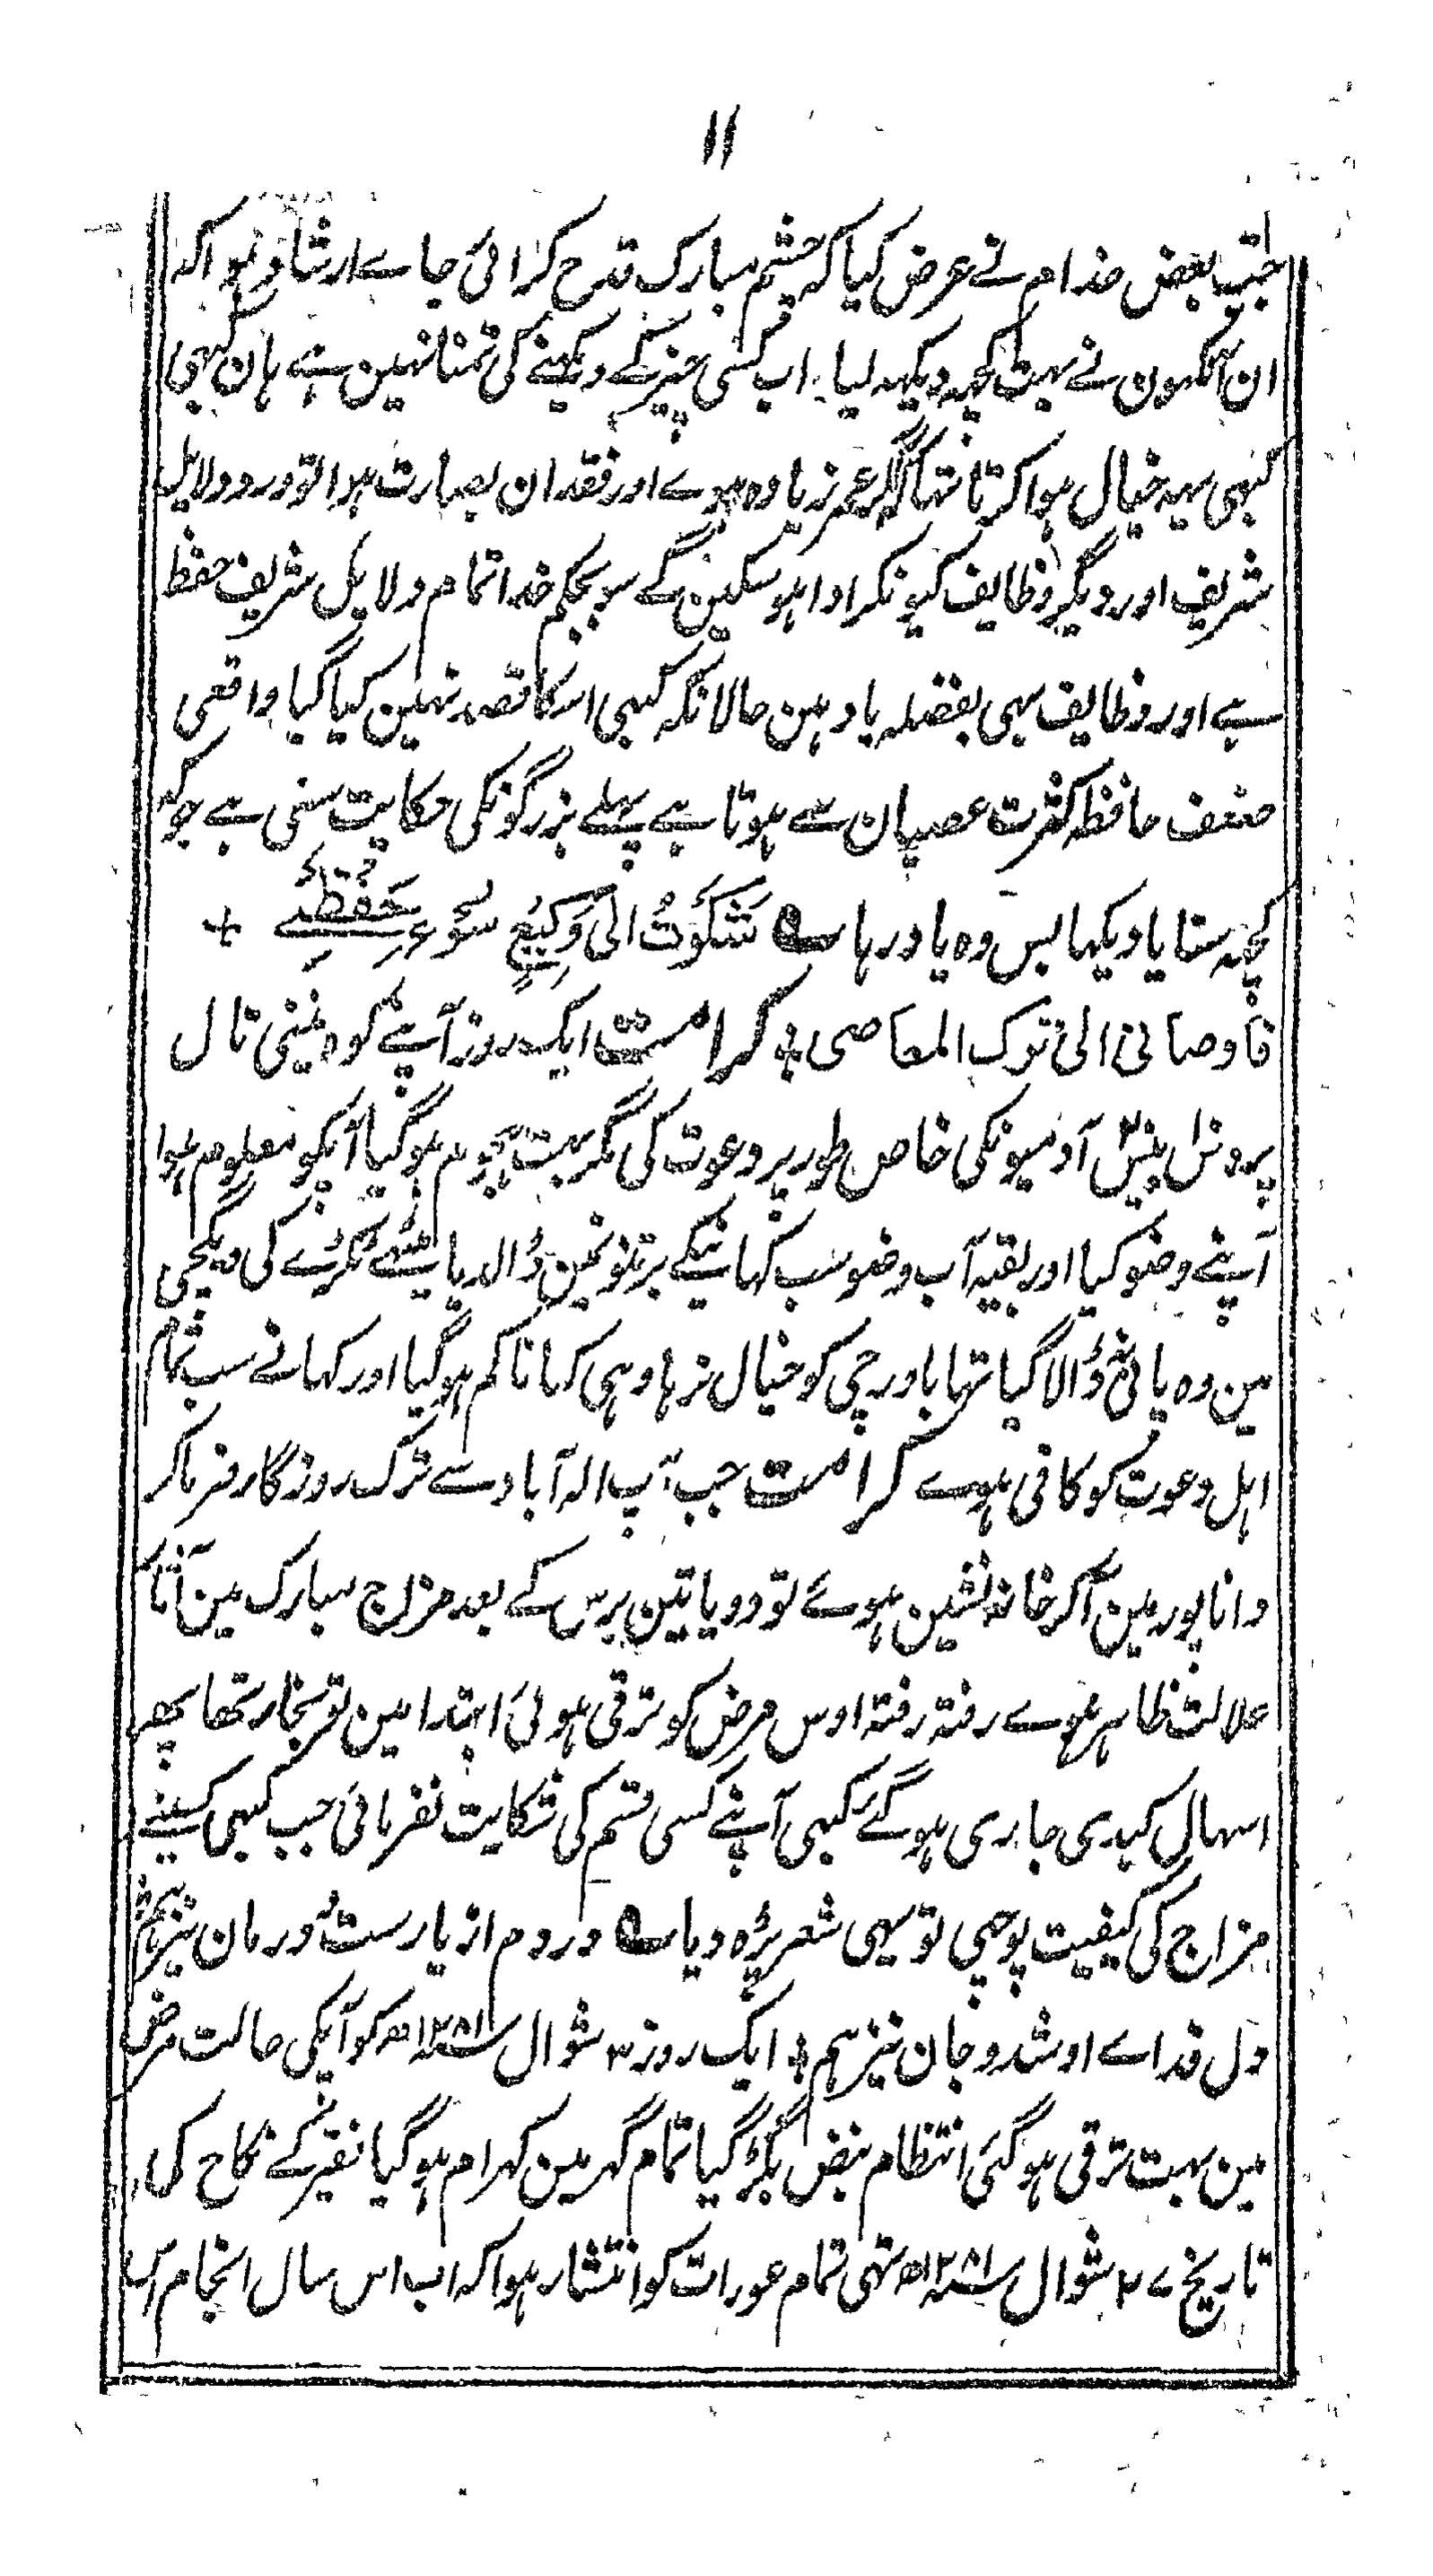 ۱۱
جب بعض خدام نے عرض کیا کہ چشم مبارک قدح کرائی جاے ارشاد ہوا کہ
ان آنکھون نے بہت کچہہ دیکہہ لیا۔ اب کسی چیز کے دیکہنے کی تمنا نہین ہے ہان کبہی
کبہی یہہ خیال ہوا کرتا تہا کہ اگر عمر زیادہ ہوے اور فقدان بصارت ہوا تو درود دلایل
شریف اور دیگر وظایف کیونکر ادا ہو سکین گے سو بحکم خدا تمام دلایل شریف حفظ
ہے اور وظایف بہی بفضلہ یاد ہین حالانکہ کبہی اسکا قصد نہین کیا گیا واقعی
ضعف حافظہ کثرت عصیان سے ہوتا ہے پہلے بزرگونکی حکایت سنی ہے جو کہ
کچہہ سنا یا دیکہا بس وہ یاد رہا ؎ شَکَوْتُ الیٰ وَکِیْعٍ سُوْءَ حِفْظِے +
فاوصانی الی ترک المعاصی ؛ کرامت ایک روز آپنے کوہ نینی تال
پر دس بیس آدمیونکی خاص طور پر دعوت کی مگر بہت ہجوم ہو گیا آپکو معلوم ہوا
آپنے وضو کیا اور بقیہ آب وضو سب کہانیکے برتنونمین ڈالدیا میٹھے ٹکڑے کی دیگچی
مین وہ پانی نہ ڈالا گیا تہا باورچی کو خیال نرہا وہی کہانا کم ہو گیا اور کہانے سب تمام
اہل دعوت کو کافی ہوے کرامت جب آپ الہ آباد سے ترک روزگار فرما کر
داناپور مین آکر خانہ نشین ہوئے تو دو یا تین برس کے بعد مزاج مبارک مین آثار
علالت ظاہر ہوے رفتہ رفتہ اوس مرض کو ترقی ہوئی ابتدا مین تو بخار تھا پھر
اسہال کبدی جاری ہو گئے کبہی آپنے کسی قسم کی شکایت نفرمائی جب کبہی کسینے
مزاج کی کیفیت پوچہی تو یہی شعر پڑہ دیا ؎ دردم از یارست و درمان نیز ہم ؛
دل فداے او شد و جان نیز ہم ؛ ایک روز ۳ شوال سنہ ۱۲۸۱ھ کو آپکی حالت مرض
مین بہت ترقی ہو گئی انتظام نبض بگڑ گیا تمام گہر مین کہرام ہو گیا فقیر کے نکاح کی
تاریخ ۲۷ شوال سنہ ۱۲۸۱ھ تہی تمام عورات کو انتشار ہوا کہ اب اس سال انجام اس